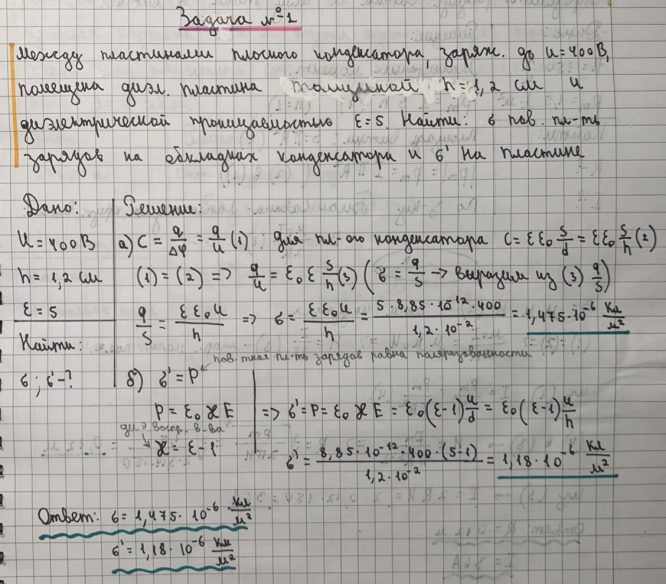 Задача №1
Между пластинами плоского конденсатора, заряж. до u = 400 В,
помещена диэл. пластина толщиной h = 1,2 см и
диэлектрической проницаемостью ε = 5. Найти: σ пов. пл-ть
зарядов на обкладках конденсатора и σ' на пластине
Дано: Решение:
U = 400 В а) C = q/Δφ = q/u (1) для пл-ого конденсатора C = εε₀ S/d = εε₀ S/h (2)
h = 1,2 см (1) = (2) => q/u = ε₀ε S/h (3) (σ = q/S → выразим из (3) q/S)
ε = 5 q/S = εε₀u/h => σ = εε₀u/h = 5·8,85·10¹²·400/1,2·10⁻² = 1,475·10⁻⁶ Кл/м²
Найти: пов. тная пл-ть зарядов равна поляризованности
σ; σ' - ? б) σ' = P
P = ε₀ϰE => σ' = P = ε₀ϰE = ε₀(ε-1) u/d = ε₀(ε-1) u/h
ди э воспр. в-ва
ϰ = ε-1 σ' = 8,85·10⁻¹²·400·(5-1)/1,2·10⁻² = 1,18·10⁻⁶ Кл/м²
Ответ: σ = 1,475·10⁻⁶ Кл/м²
σ' = 1,18·10⁻⁶ Кл/м²